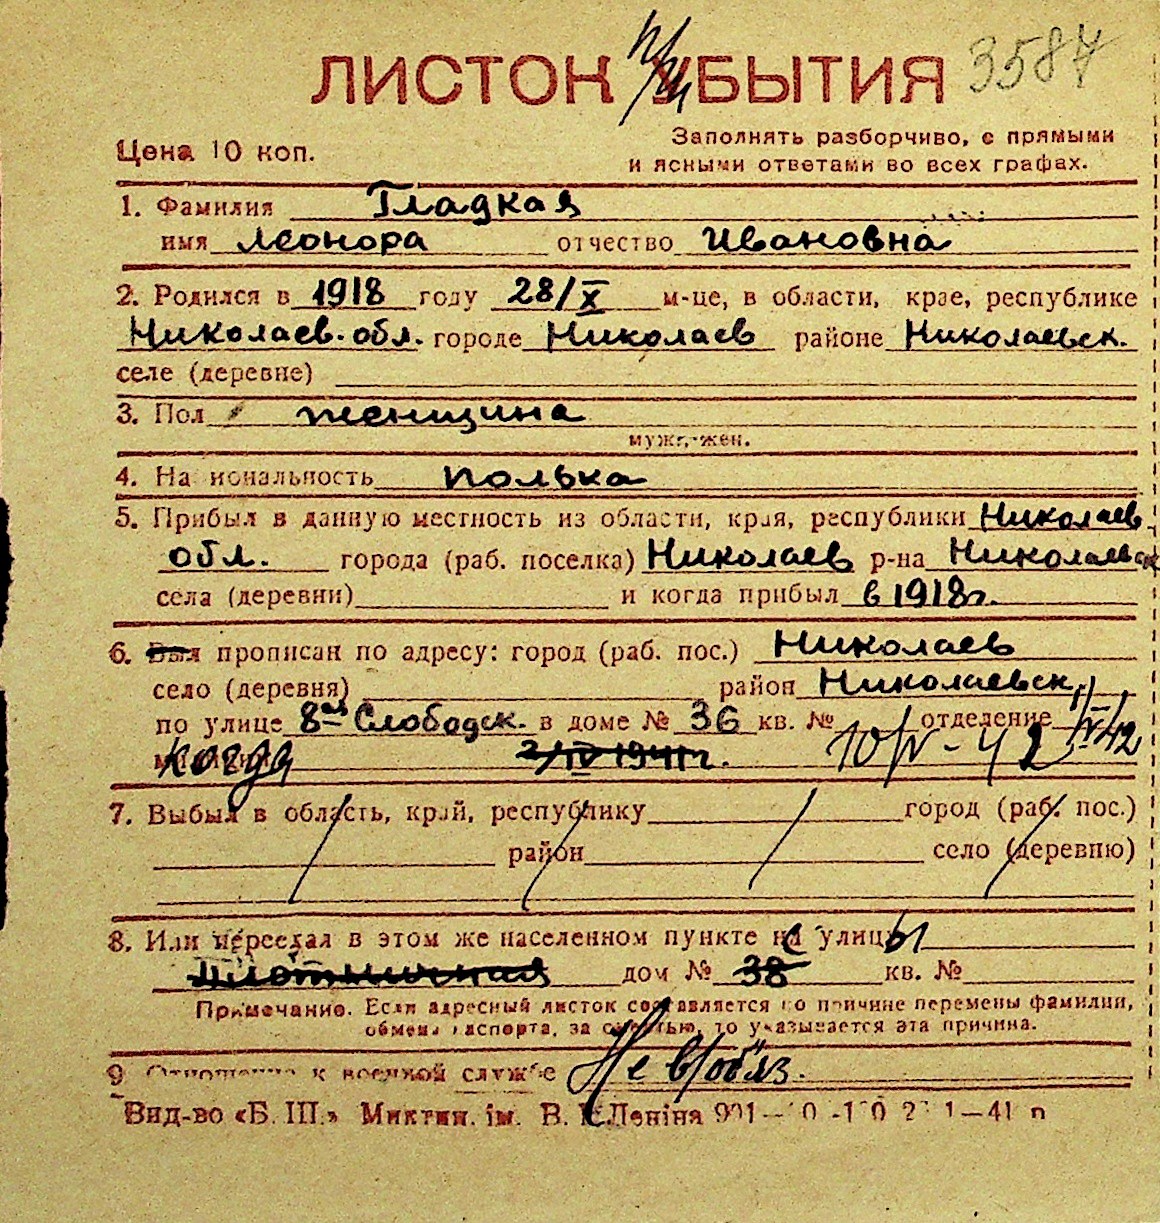 ЛИСТОК УБЫТИЯ 3587
при
Цена 10 коп.
Заполнять разборчиво, с прямыми
и ясными ответами во всех графах.
1. Фамилия Гладкая
имя Леонора отчество Ивановна
2. Родился в 1918 году 28/X м-це, в области, крае, республике
Николаев. обл. городе Николаев районе Николаевск.
селе (деревне)
3. Пол женщина
мужс.-жен.
4. Национальность полька
5. Прибыл в данную местность из области, края, республики Николаев
обл. города (раб. поселка) Николаев р-на Николаевск
села (деревни) и когда прибыл в 1918г.
6. Был прописан по адресу: город (раб. пос.) Николаев
село (деревня) район Николаевск
по улице 8ая Слободск. в доме № 36 кв. № отделение
когда 2/IV 1941г. 10/IV-42 IV/42
7. Выбыл в область, край, республику город (раб. пос.)
район село (деревню)
8. Или переехал в этом же населенном пункте на улицы
Плотничная дом № 38 кв. №
Примечание. Если адресный листок составляется по причине перемены фамилии,
обмена паспорта, за смертью, то указывается эта причина.
9 Отношение к военной службе Не в/обяз.
Вид-во «Б. Ш.» Микт ім. В. Леніна